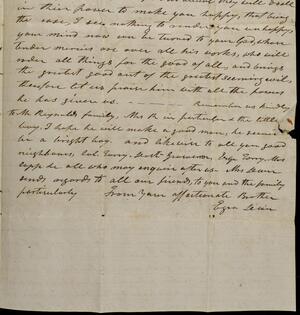 in their power to make you happy, that being
the case, I see nothing to render you unhappy,
your mind now can be turned to your God, whose
tender mercies are over all his works, who will
order all things for the good of all, and brings
the greatest good out of the greatest seeming evils,
therefore let us praise him with all the powers
he has given us. Remember us kindly
to Mr Reynolds family, Mrs R in particular & the little
boy, I hope he will make a good man, he seems
to be a bright boy. and likewise to all your good
neighbours, Col. Torry, Mrs
all who may enquire after us. Mrs
sends regards to all our friends, to you and the family
particularly From Your affectionate Brother
Ezra